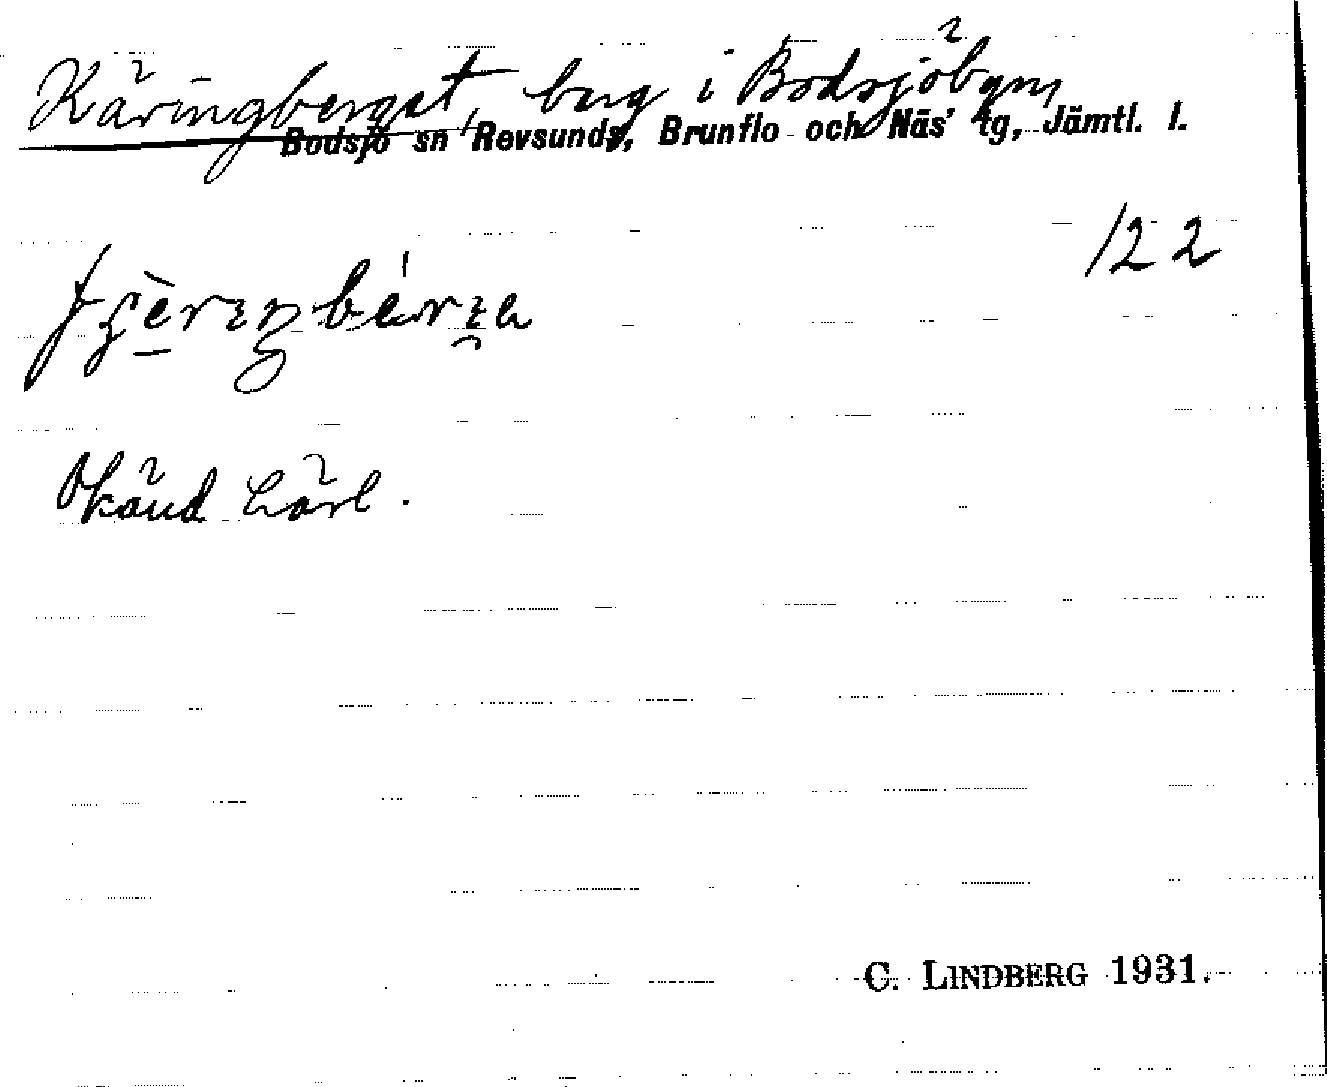 Käringberget, berg i Bodsjöbyn,
Bodsjö sn Revsunds, Brunflo och Näs' tg, Jämtl. l.
122
Okänd härl.
C. LINDBERG 1931.